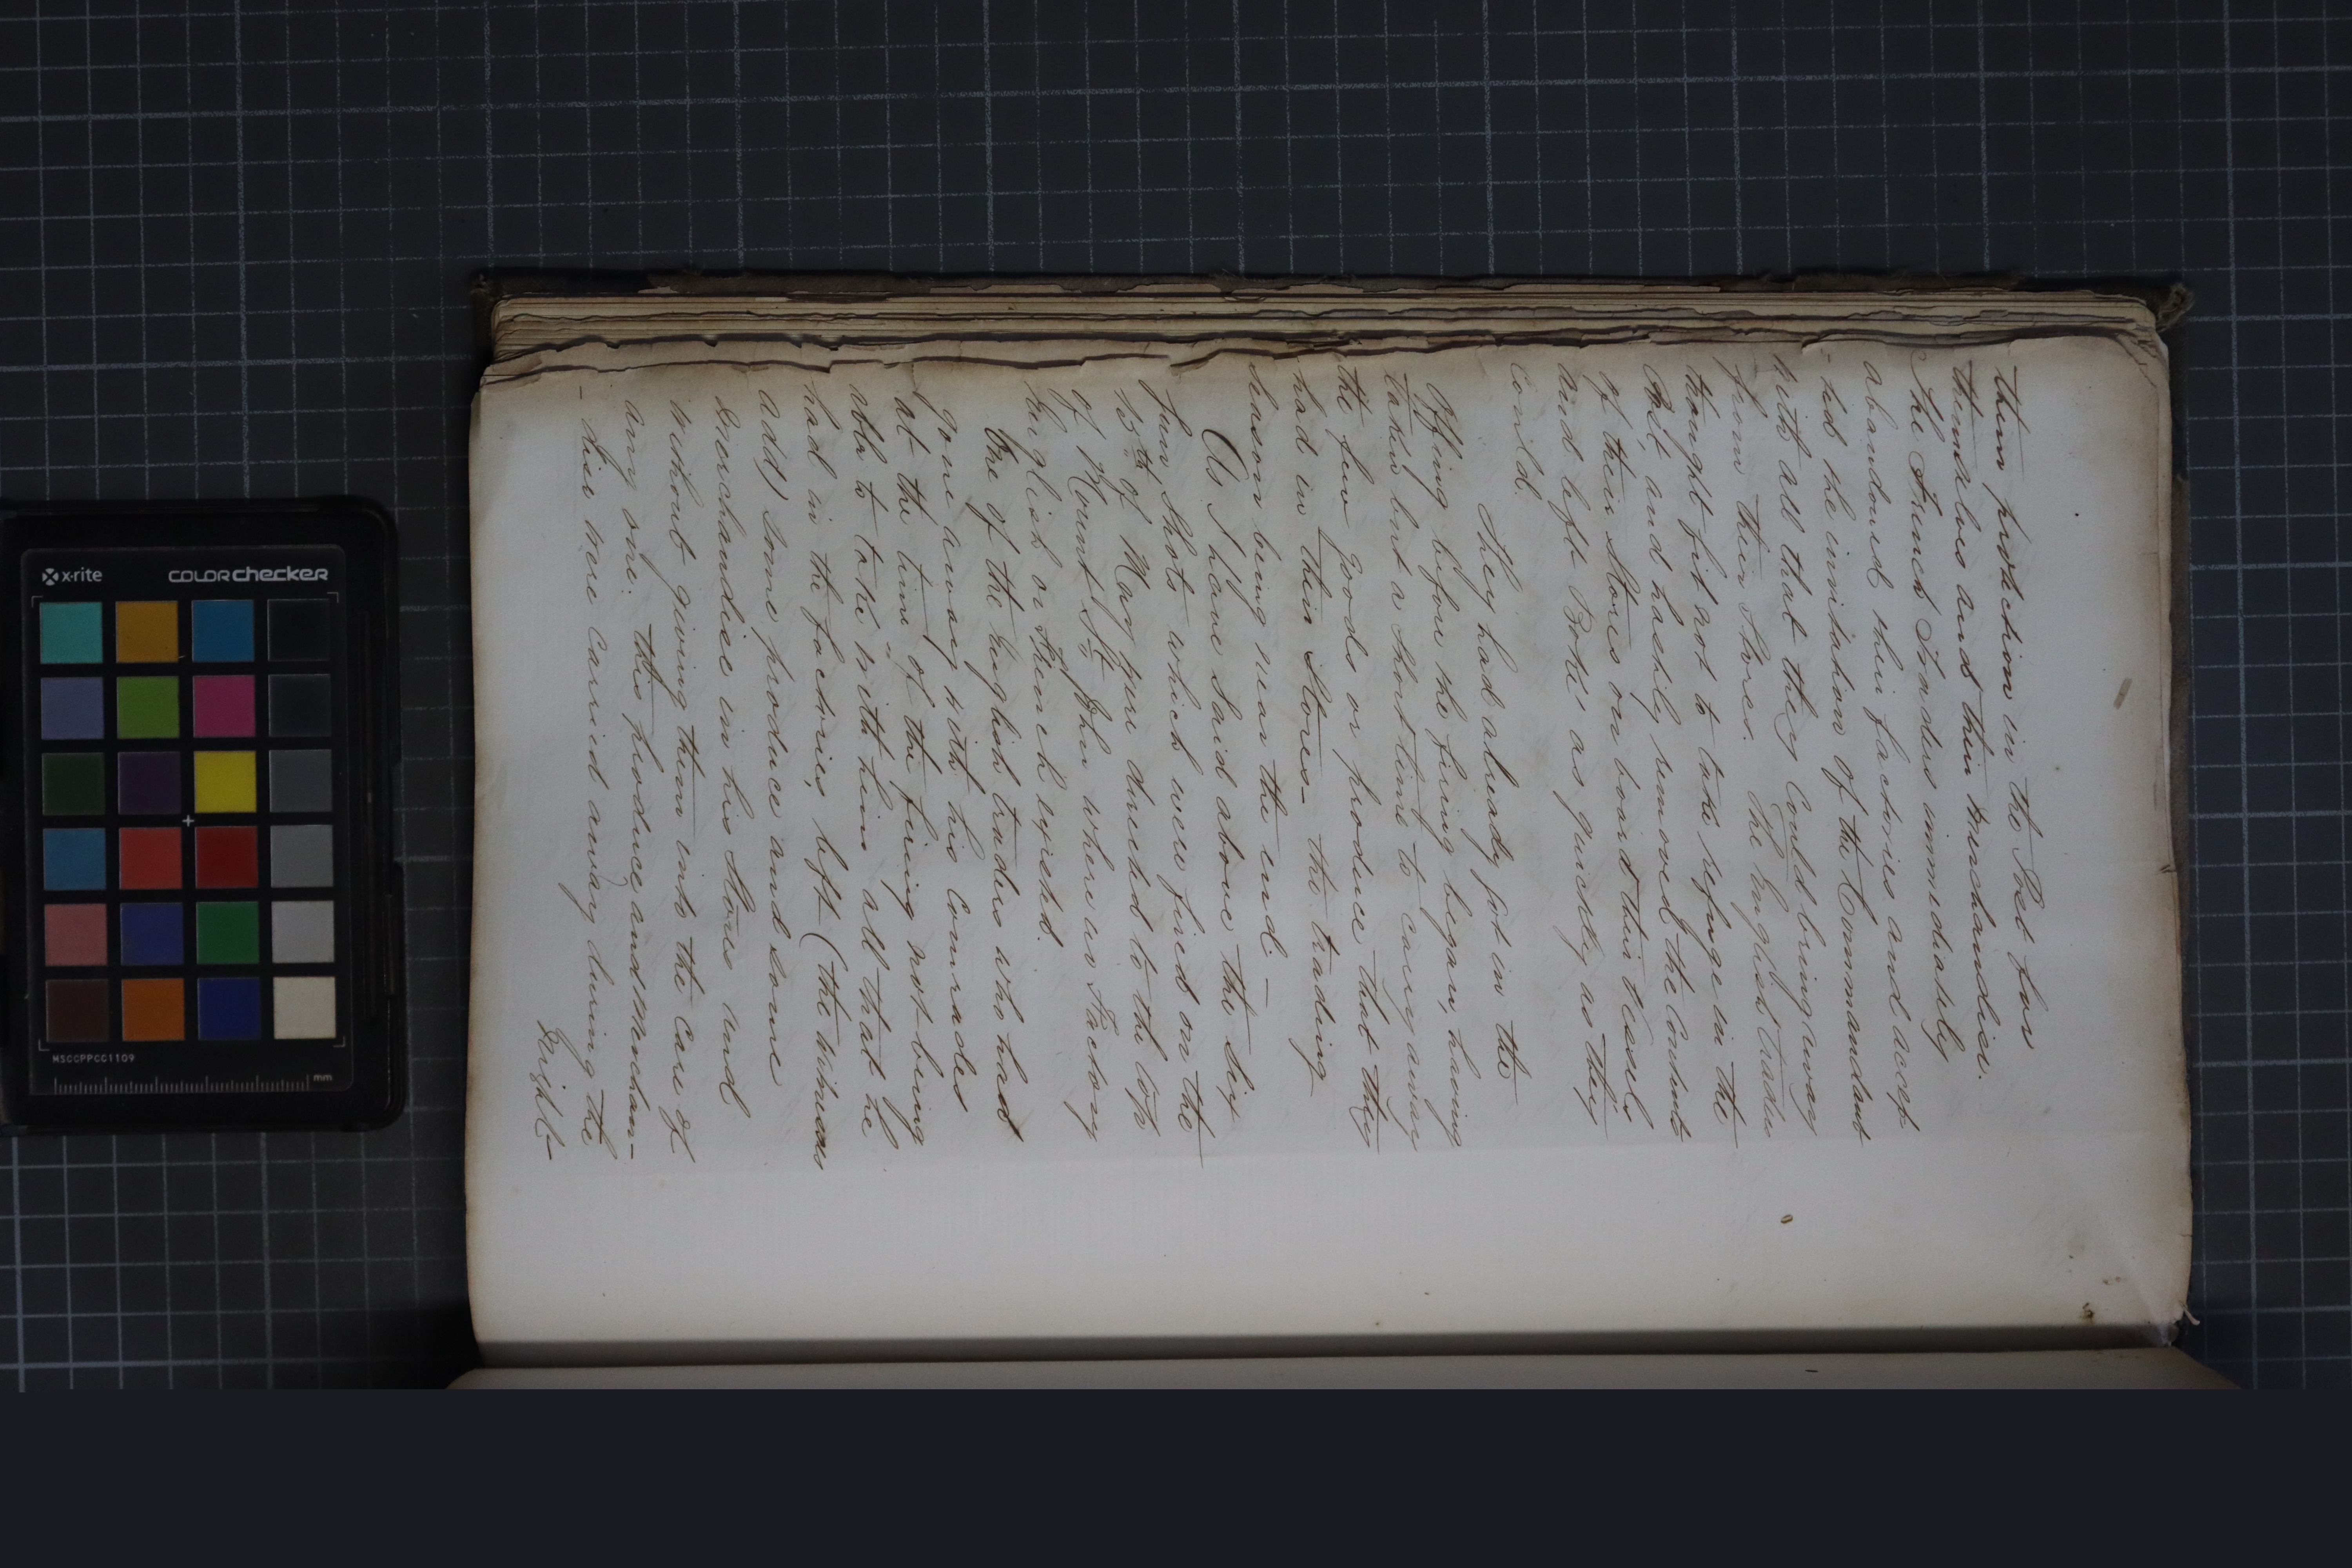 them protection in the Post for
themselves and their merchandise.
The French Traders immediately
abandoned their factories and accep
-ted the invitation of the Commandant
with all that they could bring away
from their Stores. The English trades
thought fit not to take refuge in the
Post, and hastily removed the contents
of their Stores on board their vessels
and left Boké as quickly as they
could.
They had already got in the
Offing before the firing began, having
taken but a short time to carry away
the few goods or produce that they
had in their Stores - the trading
season being near the end. -
As I have said above the six
few shots which were fired on the
15th of May were directed to the top
of Mount St. John where no Factory
English or French existed.
One of the English traders who had
gone away with his comrades
at the time of the firing not being
able to take with him all that he
had in the factories, left (the witnesses
add) some produce and some
merchandise in his Stores and
without giving them into the care of
any one. this produce and merchan-
-dise were carried away during the
night-
x-rite
colorchecker
MSCCPPCC1109
mm